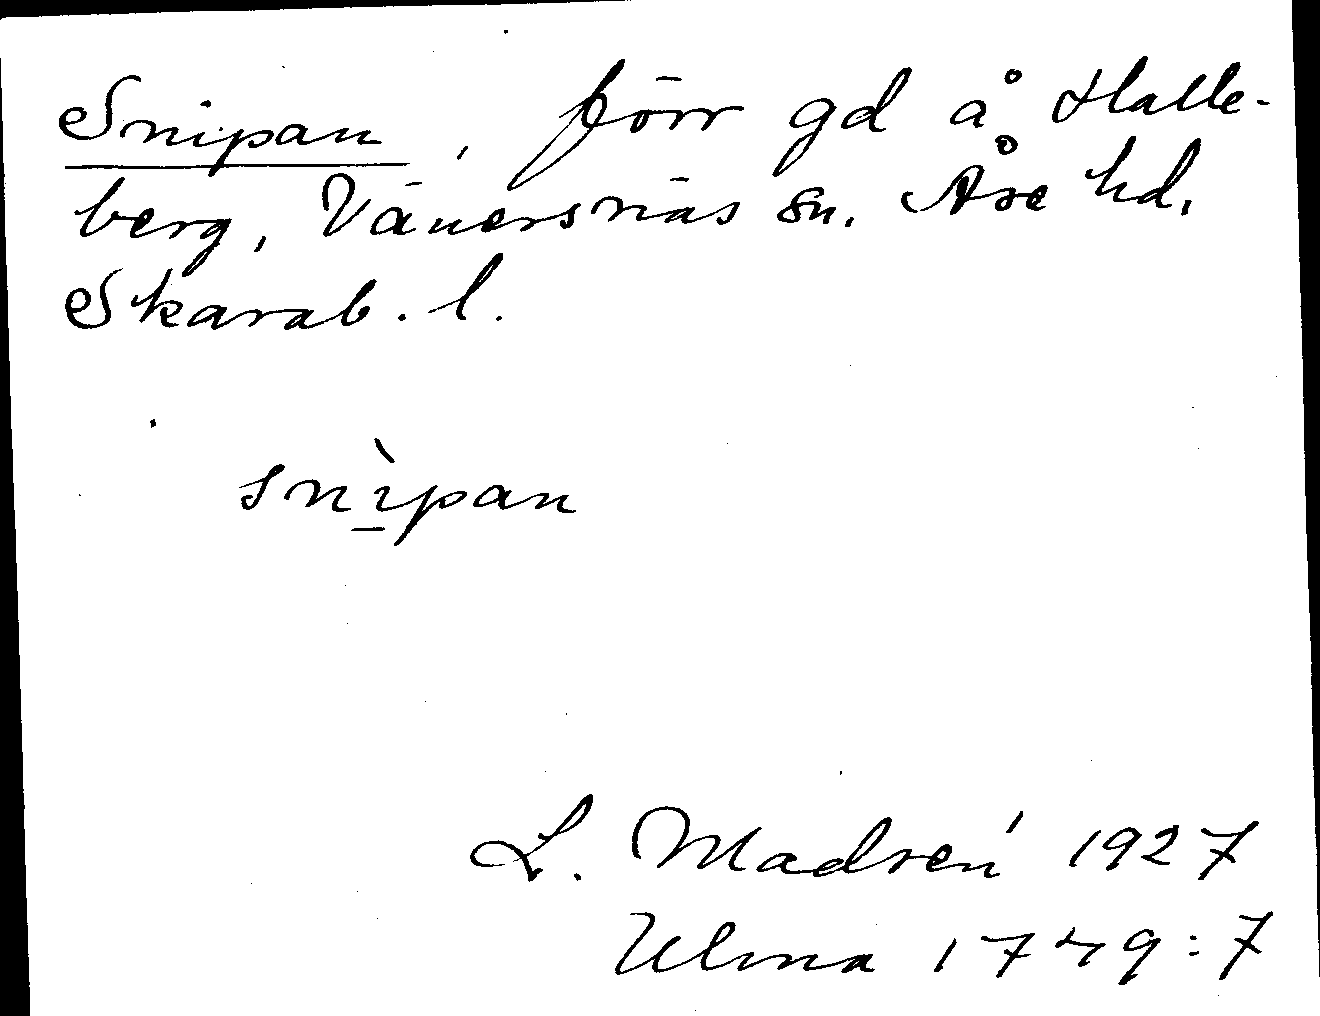 Snipan, förr gd å Halle-
berg, Vänersnäs sn. Åse hd,
Skarab. l.
snìpan
L. Madrén 1927
Ulma 1749:7